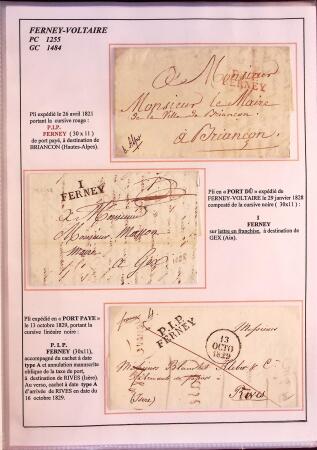 FERNEY-VOLTAIRE
PC 1255
GC 1484
Pli expédié le 26 avril 1821
portant la cursive rouge :
P.1.P.
FERNEY ( 30 x 11 )
de port payé, à destination de
BRIANCON (Hautes-Alpes).
P.1.P.
FERNEY
à Monsieur
Monsieur le Maire
de la Ville de Briançon
à Briançon
1
FERNEY
à Monsieur
Monsieur
Maire
à Gex
Pli en « PORT DÛ » expédié de
FERNEY-VOLTAIRE le 29 janvier 1828
composté de la cursive noire ( 30x11 ) :
1
FERNEY
sur lettre en franchise, à destination de
GEX (Ain).
Pli expédié en « PORT PAYE »
le 13 octobre 1829, portant la
cursive linéaire noire :
P. 1. P.
FERNEY (30x11),
accompagné du cachet à date
type A et annulation manuscrite
oblique de la taxe de port,
à destination de RIVES (Isère).
Au verso, cachet à date type A
d'arrivée de RIVES en date du
16 octobre 1829.
P.1.P.
FERNEY
13
OCTO
1829
Messieurs
Messieurs Blanchet & C.
Rives
(Isère)